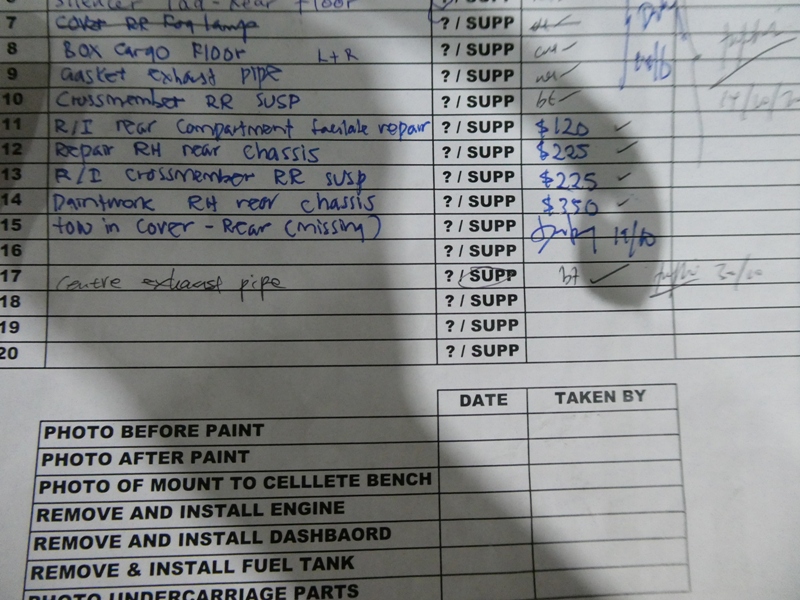 Silencer Pad - Rear Floor
7 Cover RR Fog Lamp ? / SUPP
8 Box Cargo Floor L+R ? / SUPP
9 Gasket exhaust pipe ? / SUPP
10 Crossmember RR SUSP ? / SUPP bt ✓
11 R/I rear compartment facilate repair ? / SUPP $120 ✓
12 Repair RH rear chassis ? / SUPP $225 ✓
13 R/I crossmember RR susp ? / SUPP $225 ✓
14 Paintwork RH rear chassis ? / SUPP $350 ✓
15 tow in cover - Rear (missing) ? / SUPP 14/10
16 ? / SUPP
17 Centre exhaust pipe ? / SUPP bt ✓ 30/10
18 ? / SUPP
19 ? / SUPP
20 ? / SUPP
DATE TAKEN BY
PHOTO BEFORE PAINT
PHOTO AFTER PAINT
PHOTO OF MOUNT TO CELLLETE BENCH
REMOVE AND INSTALL ENGINE
REMOVE AND INSTALL DASHBAORD
REMOVE & INSTALL FUEL TANK
PHOTO UNDERCARRIAGE PARTS